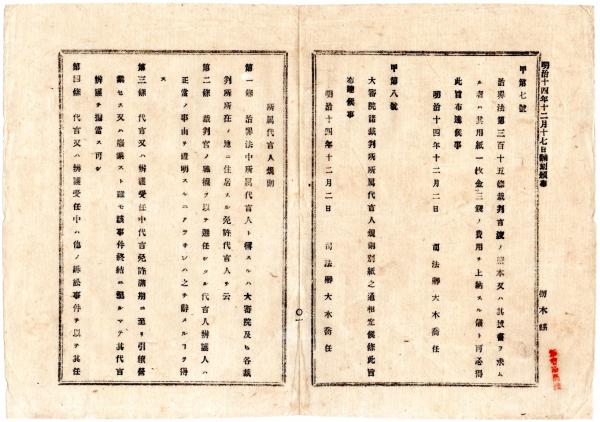 明治十四年十二月十七日
栃木縣
甲第七號
治罪法第三百十五條裁判言渡ノ謄本又ハ其拔書ヲ求ム
ル者ハ其用紙一枚金三錢ノ費用ヲ上納スル儀ト可必得
此旨布達候事
明治十四年十二月二日
司法卿大木喬任
甲第八號
大審院諸裁判所所属代言人規則別紙之通相定候條此旨
布達候事
明治十四年十二月二日
司法卿大木喬任
〇一
所属代言人規則
第一條 治罪法中所属代言人ト稱スルハ大審院及ヒ各裁
判所所在ノ地ニ住居スル免許代言人ヲ云
第二條 裁判官ノ職權ヲ以テ選任シタル代言人辨護人ハ
正當ノ事由ヲ證明スルニアラサレハ之ヲ辭スルコヲ得
ス
第三條 代言又ハ辨護受任中代言免許滿期ニ至リ引續營
業セス又ハ廢業スト雖モ該事件終結ニ至ルマテ其代言
辨護ヲ擔當ス可シ
第四條 代言又ハ辨護受任中ハ他ノ訴訟事件ヲ以テ其任